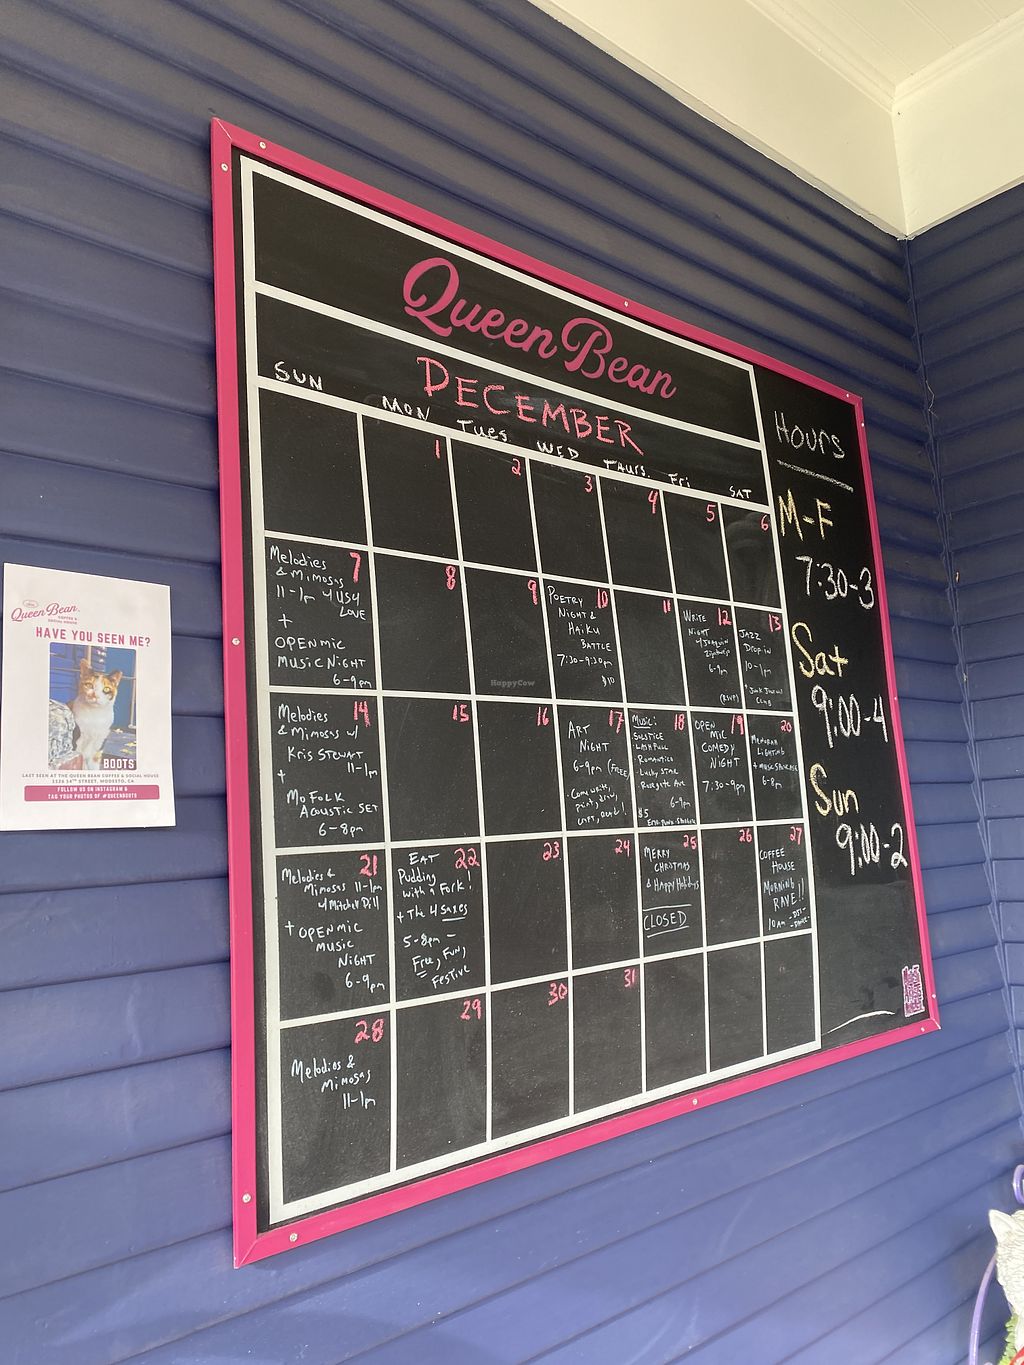 Queen Bean
DECEMBER
SUN MON Tues WED Thurs. Fri SAT
1 2 3 4 5 6
7
Melodies
& Mimosas
11-1pm
LOVE
+
OPEN MIC
MUSIC NIGHT
6-9pm
8
9
10
POETRY
NIGHT &
HAIKU
BATTLE
7:30-9:30pm
$10
11
12
WRITE
NIGHT
6-9pm
(RSVP)
13
JAZZ
Drop in
10-1pm
CLUB
14
Melodies
& Mimosas w/
Kris Stewart
11-1pm
+
Mo Folk
Acoustic Set
6-8pm
15
16
17
ART
NIGHT
6-9pm (FREE)
Come write,
print, draw,
18
Music:
SOLSTICE
Romantica
Lucky Star
6-9pm
$5
19
OPEN
MIC
COMEDY
NIGHT
7:30-9pm
20
Menorah
Lighting
6-8pm
21
Melodies &
Mimosas 11-1pm
+ OPEN MIC
MUSIC
NIGHT
6-9pm
22
EAT
Pudding
with a Fork!
+ The 4 Saxes
5-8pm -
Free, Fun,
Festive
23
24
25
MERRY
CHRISTMAS
& Happy Holidays
CLOSED
26
27
COFFEE
HOUSE
MORNING
RAVE!!
10am
28
Melodies &
Mimosas
11-1pm
29
30
31
Hours
M-F
7:30-3
Sat
9:00-4
Sun
9:00-2
HappyCow
Queen Bean
COFFEE &
SOCIAL HOUSE
HAVE YOU SEEN ME?
BOOTS
LAST SEEN AT THE QUEEN BEAN COFFEE & SOCIAL HOUSE
1126 14TH STREET, MODESTO, CA
FOLLOW US ON INSTAGRAM &
TAG YOUR PHOTOS OF #QUEENBOOTS